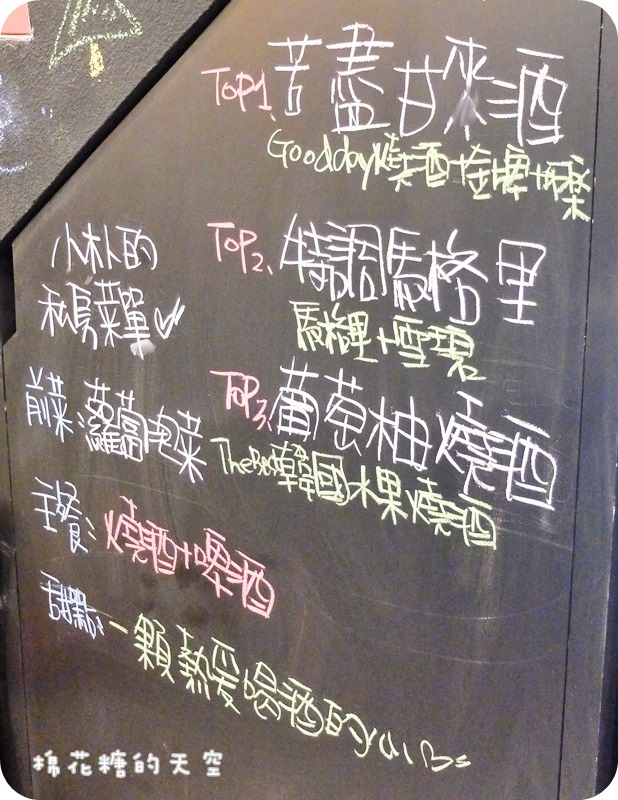 TOP1、苦盡甘來酒
Goodday燒酒+金賓+可樂
TOP2、特調馬格里
馬格里+雪碧
TOP3、葡萄柚燒酒
韓國水果燒酒
小朴的
私房菜單
前菜 蘿蔔泡菜
主餐: 燒酒+啤酒
甜點: 一顆熱愛喝酒的
棉花糖的天空